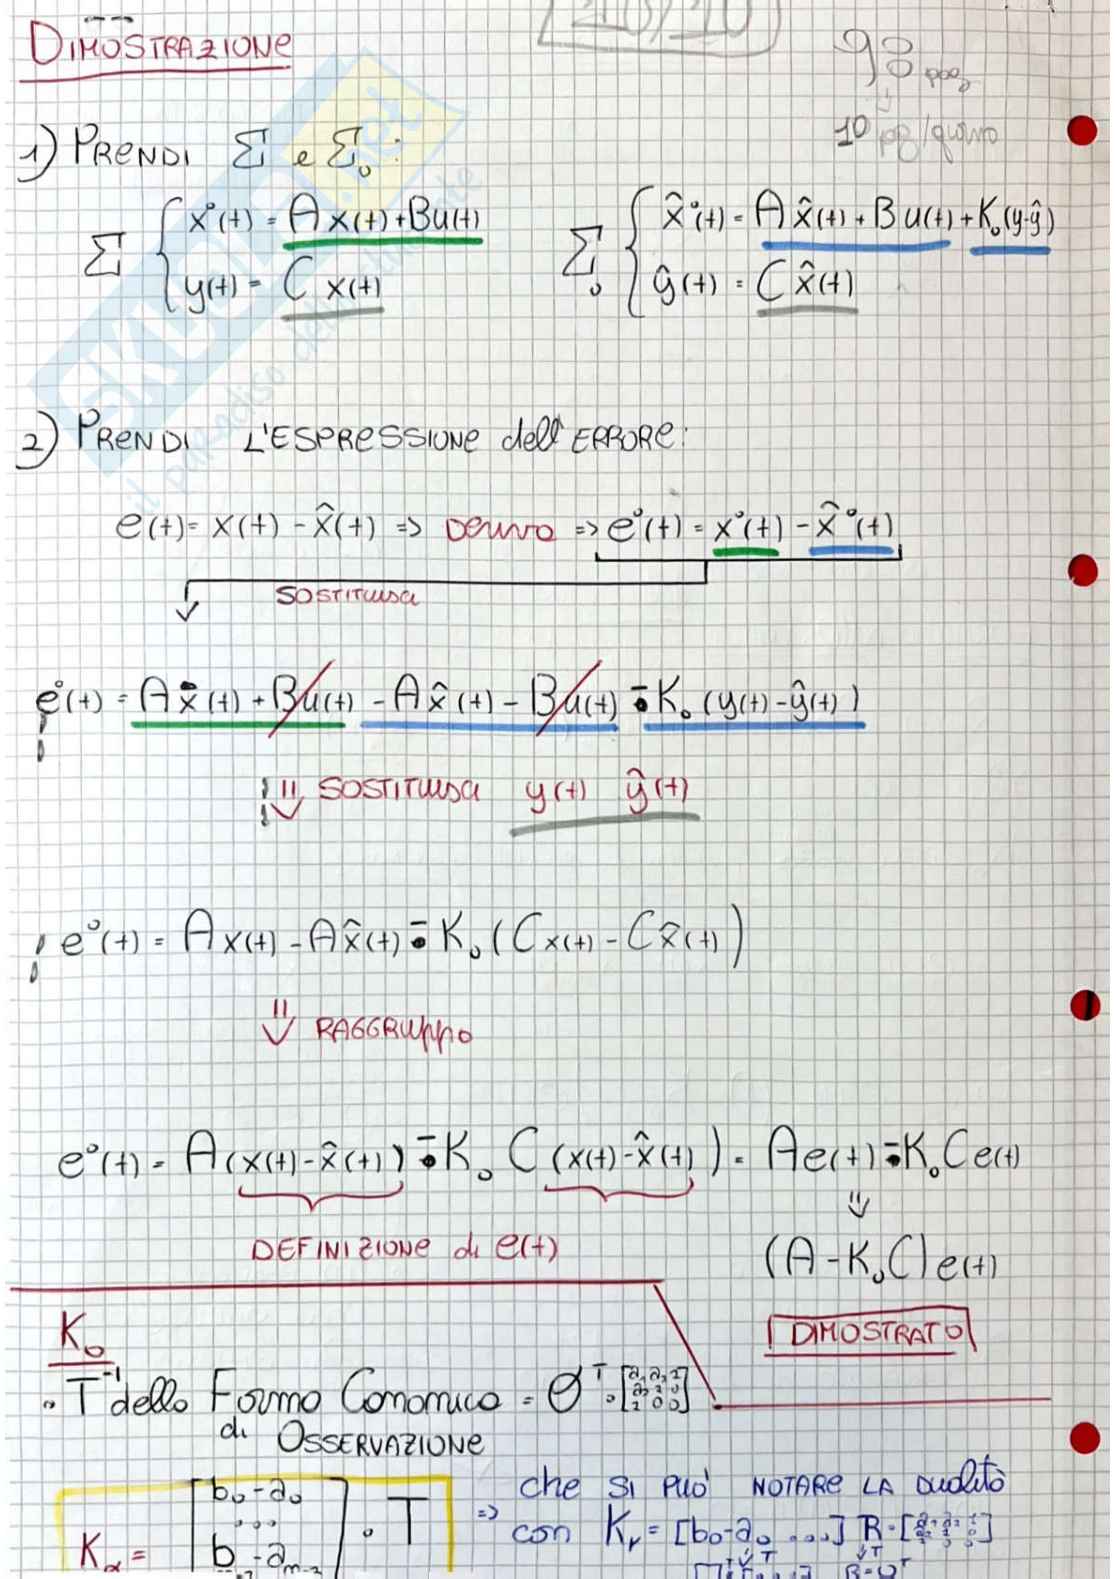 DIMOSTRAZIONE
98 pag
10 pg/giorno
1) PRENDI Σ e Σ₀:
Σ { x°(t) = A x(t) + B u(t)
y(t) = C x(t)
Σ₀ { x̂°(t) = A x̂(t) + B u(t) + K₀(y-ŷ)
ŷ(t) = C x̂(t)
SKUOLA.net
il paradiso dello studente
2) PRENDI L'ESPRESSIONE dell'ERRORE:
e(t) = x(t) - x̂(t) => Derivo => e°(t) = x°(t) - x̂°(t)
SOSTITUISCI
e°(t) = A x(t) + B u(t) - A x̂(t) - B u(t) - K₀ (y(t) - ŷ(t))
⇓ SOSTITUISCI y(t) ŷ(t)
e°(t) = A x(t) - A x̂(t) - K₀ (C x(t) - C x̂(t))
⇓ RAGGRUPPO
e°(t) = A (x(t) - x̂(t)) - K₀ C (x(t) - x̂(t)) = A e(t) - K₀ C e(t)
⇓
DEFINIZIONE di e(t)
(A - K₀C) e(t)
DIMOSTRATO
K₀
• T⁻¹ della Forma Canonica = O^T •
di OSSERVAZIONE
b₀ - a₀
...
K = b - a • T
=> che SI PUÒ NOTARE LA dualità
con Kᵣ = [b₀ - a₀ ...] R =